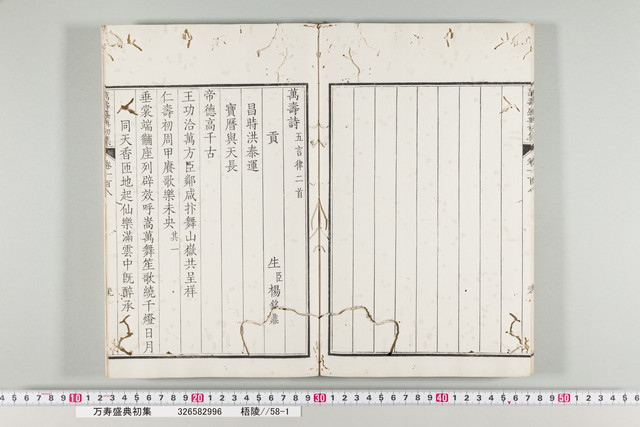 萬壽盛典初集 卷一百八
萬壽詩 五言律二首
貢生臣楊銘鼎
昌時洪泰運
寶曆與天長
帝德高千古
王功洽萬方臣鄰咸抃舞山嶽共呈祥
仁壽初周甲賡歌樂未央 其一
垂裳端黼座列辟效呼嵩萬舞笙歌繞千燈日月
同天香匝地起仙樂滿雲中旣醉承
萬壽盛典初集 卷一百八
万寿盛典初集 326582996 梧陵//58-1
10 20 30 40 50